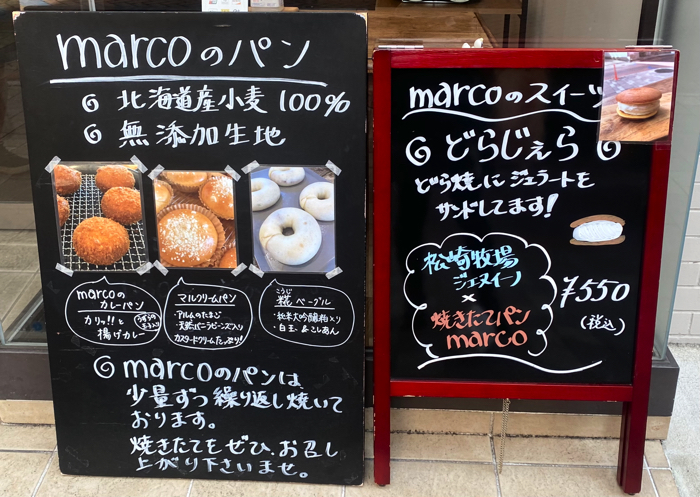 marcoのパン
北海道産小麦 100%
無添加生地
marcoの
カレーパン
カリッ!!と
揚げカレー
マルクリームパン
・アルムのたまご
・天然バニラビーンズ入り
カスタードクリームたっぷり!
こうじ
糀 ベーグル
・純米大吟醸粕入り
・白玉 & こしあん
marcoのパンは
少量ずつ繰り返し焼いて
おります。
焼きたてをぜひ、お召し
上がり下さいませ。
marcoのスイーツ
どらじぇら
どら焼にジェラートを
サンドしてます!
松崎牧場
ジェヌイーノ
×
焼きたてパン
marco
¥550
(税込)